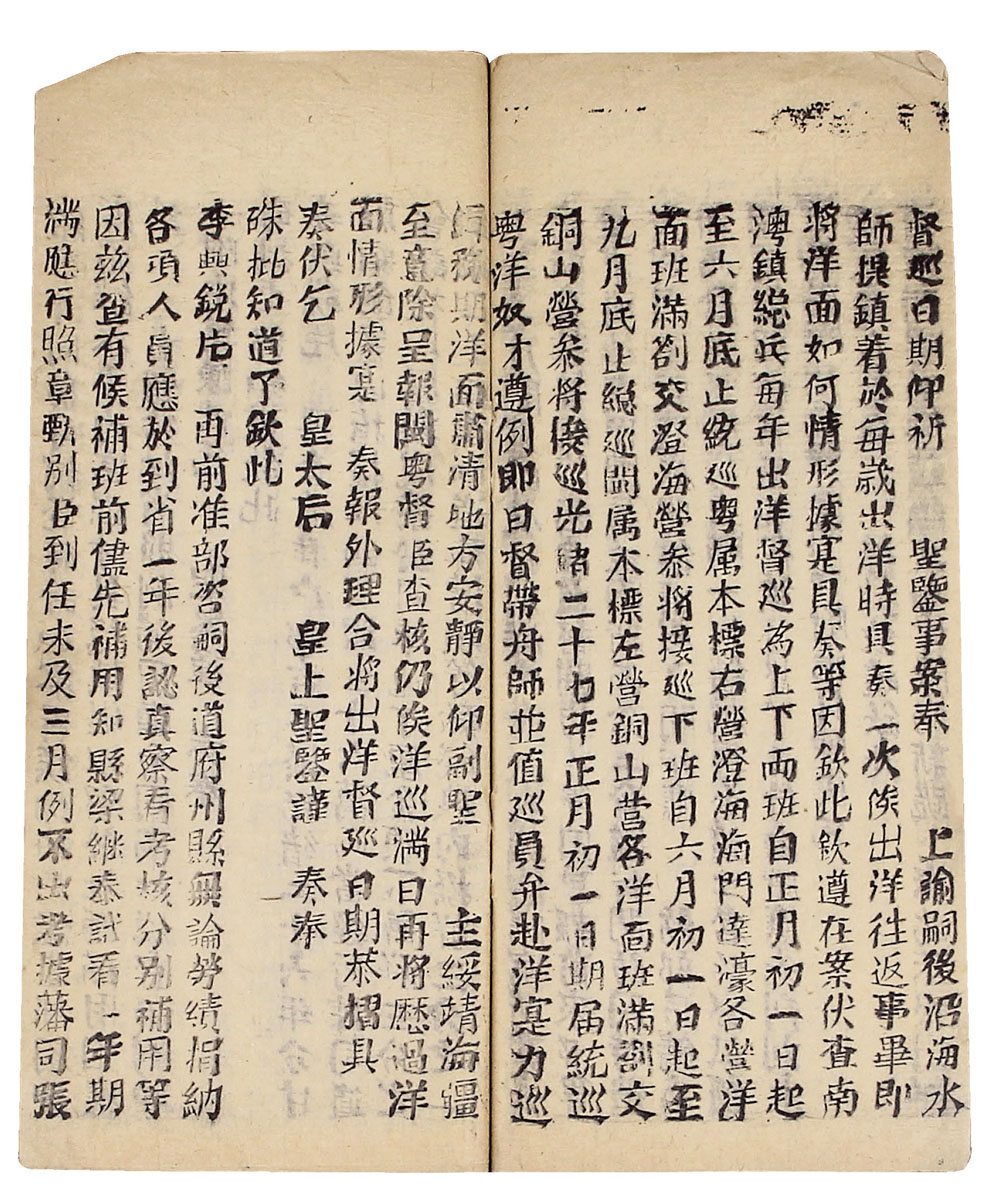 督巡日期仰祈　聖鑒事案奉　上諭嗣後沿海水
師提鎮着於每歲出洋時具奏一次俟出洋往返事畢即
將洋面如何情形據寔具奏等因欽此欽遵在案伏查南
澳鎮総兵每年出洋督巡為上下両班自正月初一日起
至六月底止統巡粤属本標右營澄海海門達濠各營洋
面班滿劄交澄海營叅將接巡下班自六月初一日起至
九月底止総巡閩属本標左營銅山营各洋面班滿劄交
銅山營叅將接巡光緒二十七年正月初一日期届統巡
粤洋奴才遵例即日督帶舟師並值巡員弁赴洋寔力巡
期洋面肅清地方安靜以仰副聖　主綏靖海疆
至意除呈報閩粤督臣查核仍俟洋巡滿日再將歷過洋
面情形據寔　奏報外理合將出洋督巡日期恭摺具
奏伏乞　皇太后　皇上聖鑒謹　奏奉
硃批知道了欽此
李興銳片　再前准部咨嗣後道府州縣無論勞績捐納
各項人員應於到省一年後認真察看考核分别補用等
因兹查有候補班前儘先補用知縣梁継泰試看一年期
滿應行照章甄别臣到任未及三月例不出考據藩司張